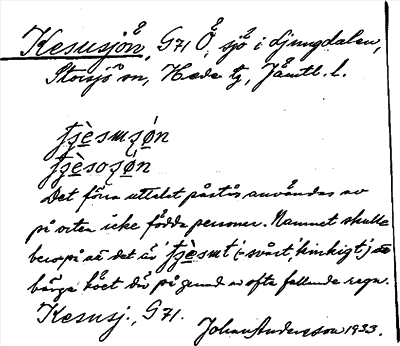 Kesusjön, G71 Ö, sjö i Ljungdalen,
Storsjö sn, Hede tg, Jämtl. l.
tjèsusjo̊n
tjèsosjo̊n
Det förra uttalet påstås användas av
på orten icke födda personer. Namnet skulle
bero på att det är tjesut (= svårt, kinkigt) att
bärga höet där på grund av ofta fallande regn.
Kesusj., G71.
Johan Andersson 1933.